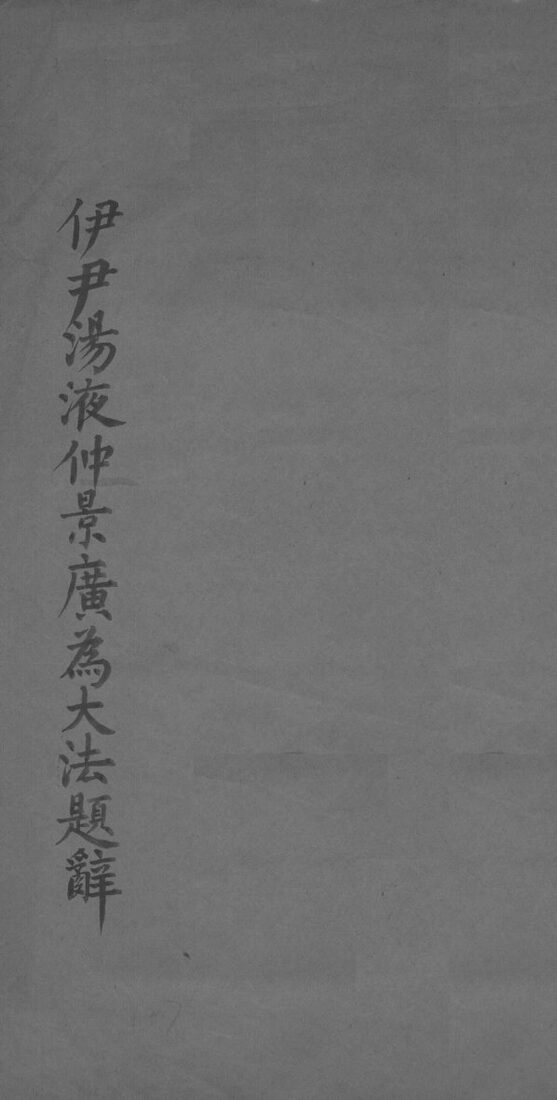 伊尹湯液仲景廣為大法題辭